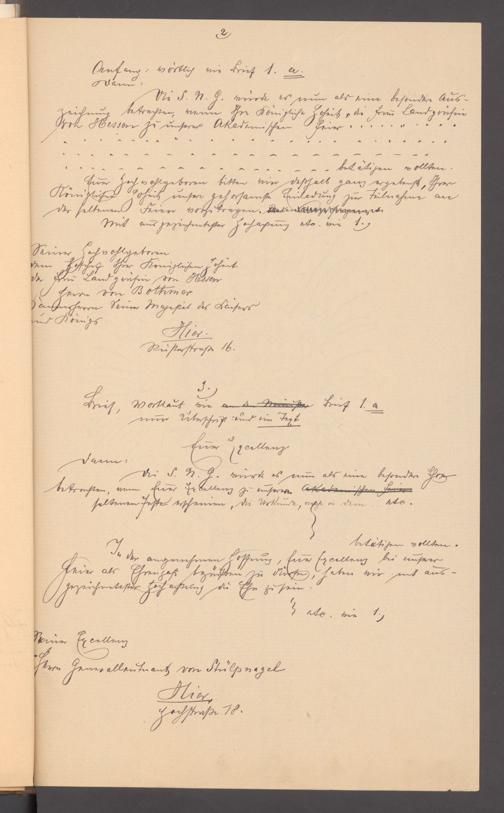 2
Anfang: wörtlich wie Brief 1. a.
Dann:
Die S. N. G. würde es nun als eine besondere Aus-
zeichnung betrachten, wenn Ihre Königliche Hoheit, die Frau Landgräfin
von Hessen zu unserer Akademischen Feier . . . . .
. . . . . . . . . .
. . . . . . . . . .
. . . . . . . . . . betätigen wollten.
Euer Hochwohlgeboren bitten wir deshalb ganz ergebenst, Ihrer
Königlichen Hoheit unsere gehorsamste Einladung zur Teilnahme an
der seltenen Feier vorzutragen.
Mit ausgezeichneter Hochachtung etc. wie 1.)
Seiner Hochwohlgeboren
dem Ihrer Königlichen Hoheit
der Frau Landgräfin von Hessen
Herrn von Bothmer
Kammerherrn Seiner Majestät des Kaisers
und Königs
Hier.
16.
3.)
Brief, Wortlaut wie Brief 1. a
nur Überschrift und im Text
Euer Excellenz
Dann:
Die S. N. G. würde es nun als eine besondere Ehre
betrachten, wenn Euer Excellenz zu unserer Akademischen Feier
seltenen Feste erscheinen, die etc.
betätigen wollten.
In der angenehmen Hoffnung, Euer Excellenz bei unserer
Feier als Ehrengast begrüßen zu dürfen, haben wir mit aus-
gezeichneter Hochachtung die Ehre zu sein.
etc. wie 1.)
Seiner Excellenz
Herrn Generalleutnant von Stülpnagel
Hier.
Hochstraße 18.